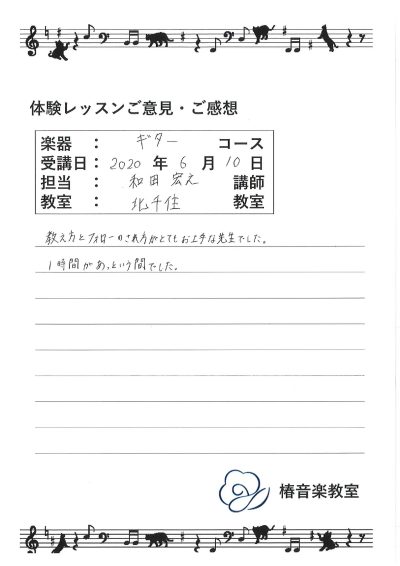 体験レッスンご意見・ご感想
楽器 : ギター コース
受講日: 2020 年 6 月 10 日
担当 : 和田 宏之 講師
教室 : 北千住 教室
教え方とフォローのされ方がとてもお上手な先生でした。
1時間があっという間でした。
椿音楽教室